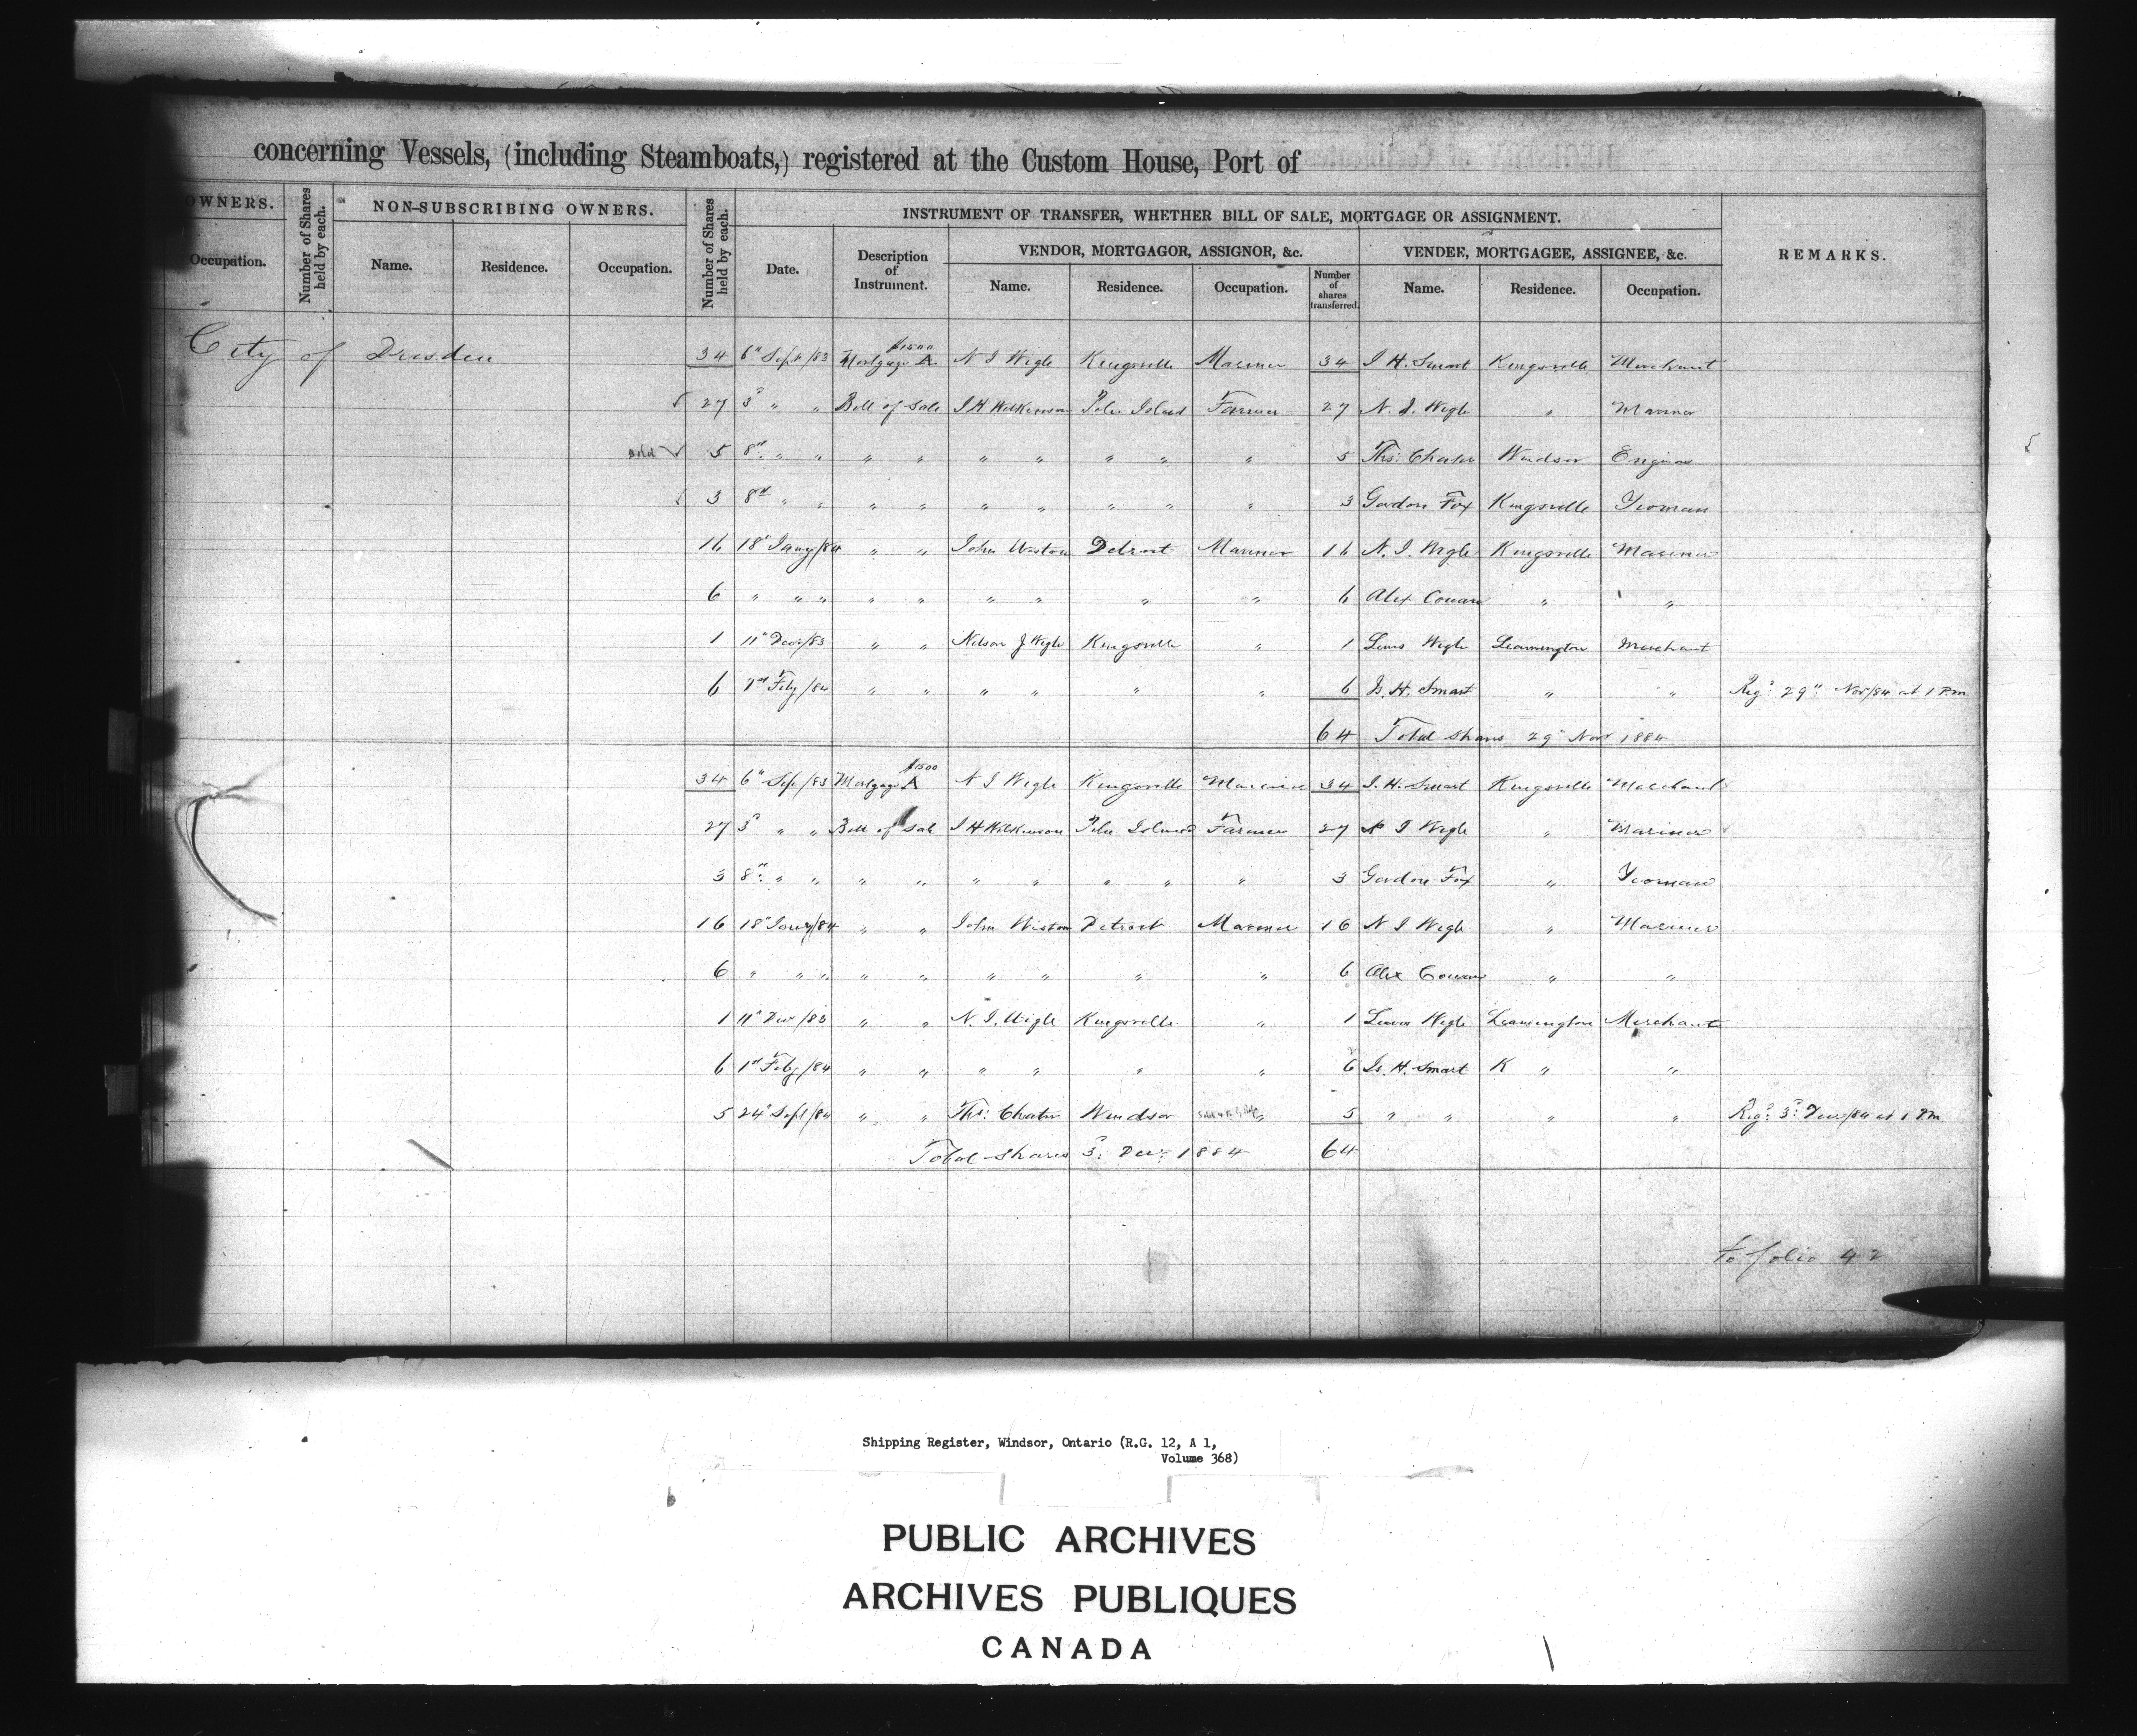 concerning Vessels, (including Steamboats,) registered at the Custom House, Port of
OWNERS. Number of Shares held by each. NON-SUBSCRIBING OWNERS. Number of Shares held by each. INSTRUMENT OF TRANSFER, WHETHER BILL OF SALE, MORTGAGE OR ASSIGNMENT. REMARKS.
VENDOR, MORTGAGOR, ASSIGNOR, &c. VENDEE, MORTGAGEE, ASSIGNEE, &c.
Occupation. Name. Residence. Occupation. Date. Description of Instrument. Name. Residence. Occupation. Number of shares transferred. Name. Residence. Occupation.
City of Dresden 34 6" Sept/83 Mortgage A $1500. N J Wigle Kingsville Mariner 34 J H. Smart Kingsville Merchant
27 3d " " Bill of Sale J H Wilkinson Pelee Island Farmer 27 N. J. Wigle " Mariner
Sold 5 8" " " " " " " " " " 5 Ths: Chater Windsor Engineer
3 8" " " " " " " " " " 3 Gordon Fox Kingsville Yeoman
16 18" Jany/84 " " John Weston Detroit Mariner 16 N. J. Wigle Kingsville Mariner
6 " " " " " " " " " 6 Alex Cowan " "
1 11" Decr/83 " " Nelson J Wigle Kingsville " 1 Lewis Wigle Leamington Merchant
6 1st Feby/84 " " " " " " 6 Js. H. Smart " " Regd 29" Nov/84 at 1 P.m
64 Total shares 29" Novr 1884
34 6" Sep/83 Mortgage A $1500 N J Wigle Kingsville Mariner 34 J. H. Smart Kingsville Merchant
27 3d " " Bill of Sale J H Wilkinson Pelee Island Farmer 27 N J Wigle " Mariner
3 8" " " " " " " " " " 3 Gordon Fox " Yeoman
16 18" Jany/84 " " John Weston Detroit Mariner 16 N J Wigle " Mariner
6 " " " " " " " " " 6 Alex Cowan " "
1 11" Decr/83 " " N. J. Wigle Kingsville " 1 Lewis Wigle Leamington Merchant
6 1st Feby/84 " " " " " " 6 Js. H. Smart K " "
5 24" Sept/84 " " Ths: Chater Windsor " 5 " " " " Regd 3d Decr/84 at 1 P.m
Total shares 3d Decr 1884 64
to folio 42
Shipping Register, Windsor, Ontario (R.G. 12, A 1,
Volume 368)
PUBLIC ARCHIVES
ARCHIVES PUBLIQUES
CANADA